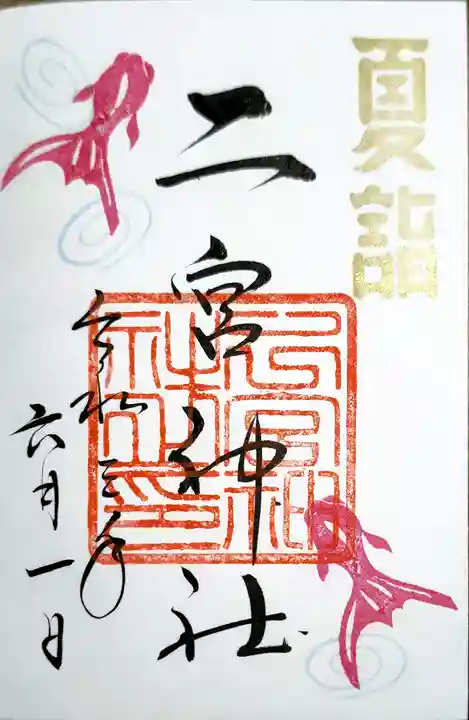 夏詣
二宮神社
令和三年
六月一日